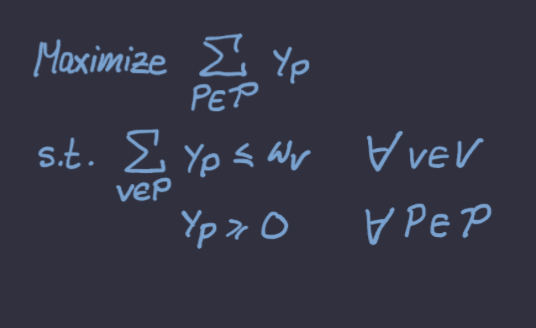 Maximize ∑_{P∈𝒫} y_P
s.t. ∑_{v∈P} y_P ≤ w_v ∀ v∈V
y_P ≥ 0 ∀ P∈𝒫